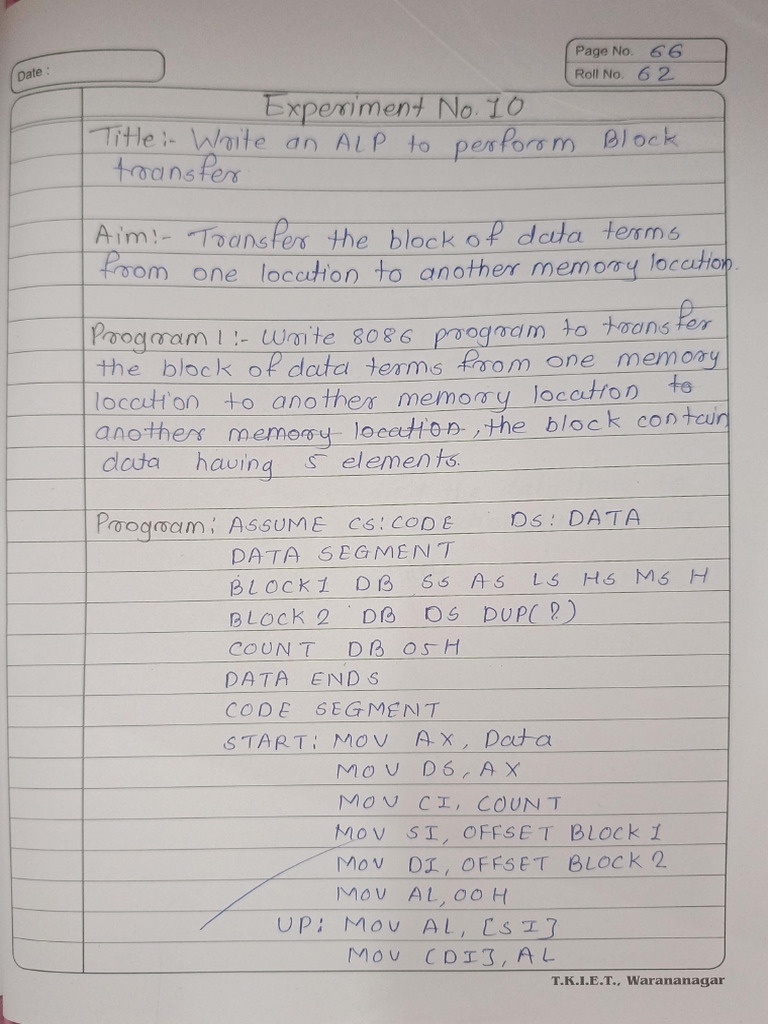 Date :
Page No. 66
Roll No. 62
Experiment No. 10
Title:- Write an ALP to perform Block
transfer
Aim:- Transfer the block of data terms
from one location to another memory location.
Program 1:- Write 8086 program to transfer
the block of data terms from one memory
location to another memory location to
another memory location, the block contain
data having 5 elements.
Program: ASSUME CS:CODE DS:DATA
DATA SEGMENT
BLOCK1 DB SS AS LS HS MS H
BLOCK 2 DB OS DUP(?)
COUNT DB 05H
DATA ENDS
CODE SEGMENT
START: MOV AX, Data
MOV DS, AX
MOV CI, COUNT
MOV SI, OFFSET BLOCK 1
MOV DI, OFFSET BLOCK 2
MOV AL, 00H
UP: MOV AL, [SI]
MOV [DI], AL
T.K.I.E.T., Warananagar